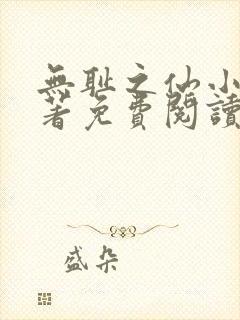 無耻之仙小
著免費閱讀
盛朵